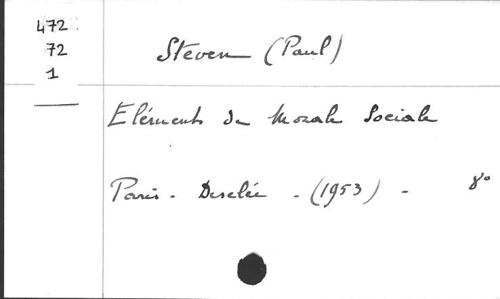 472
72
1
Steven (Paul)
Eléments de Morale Sociale
Paris - Desclée - (1953) - 8°